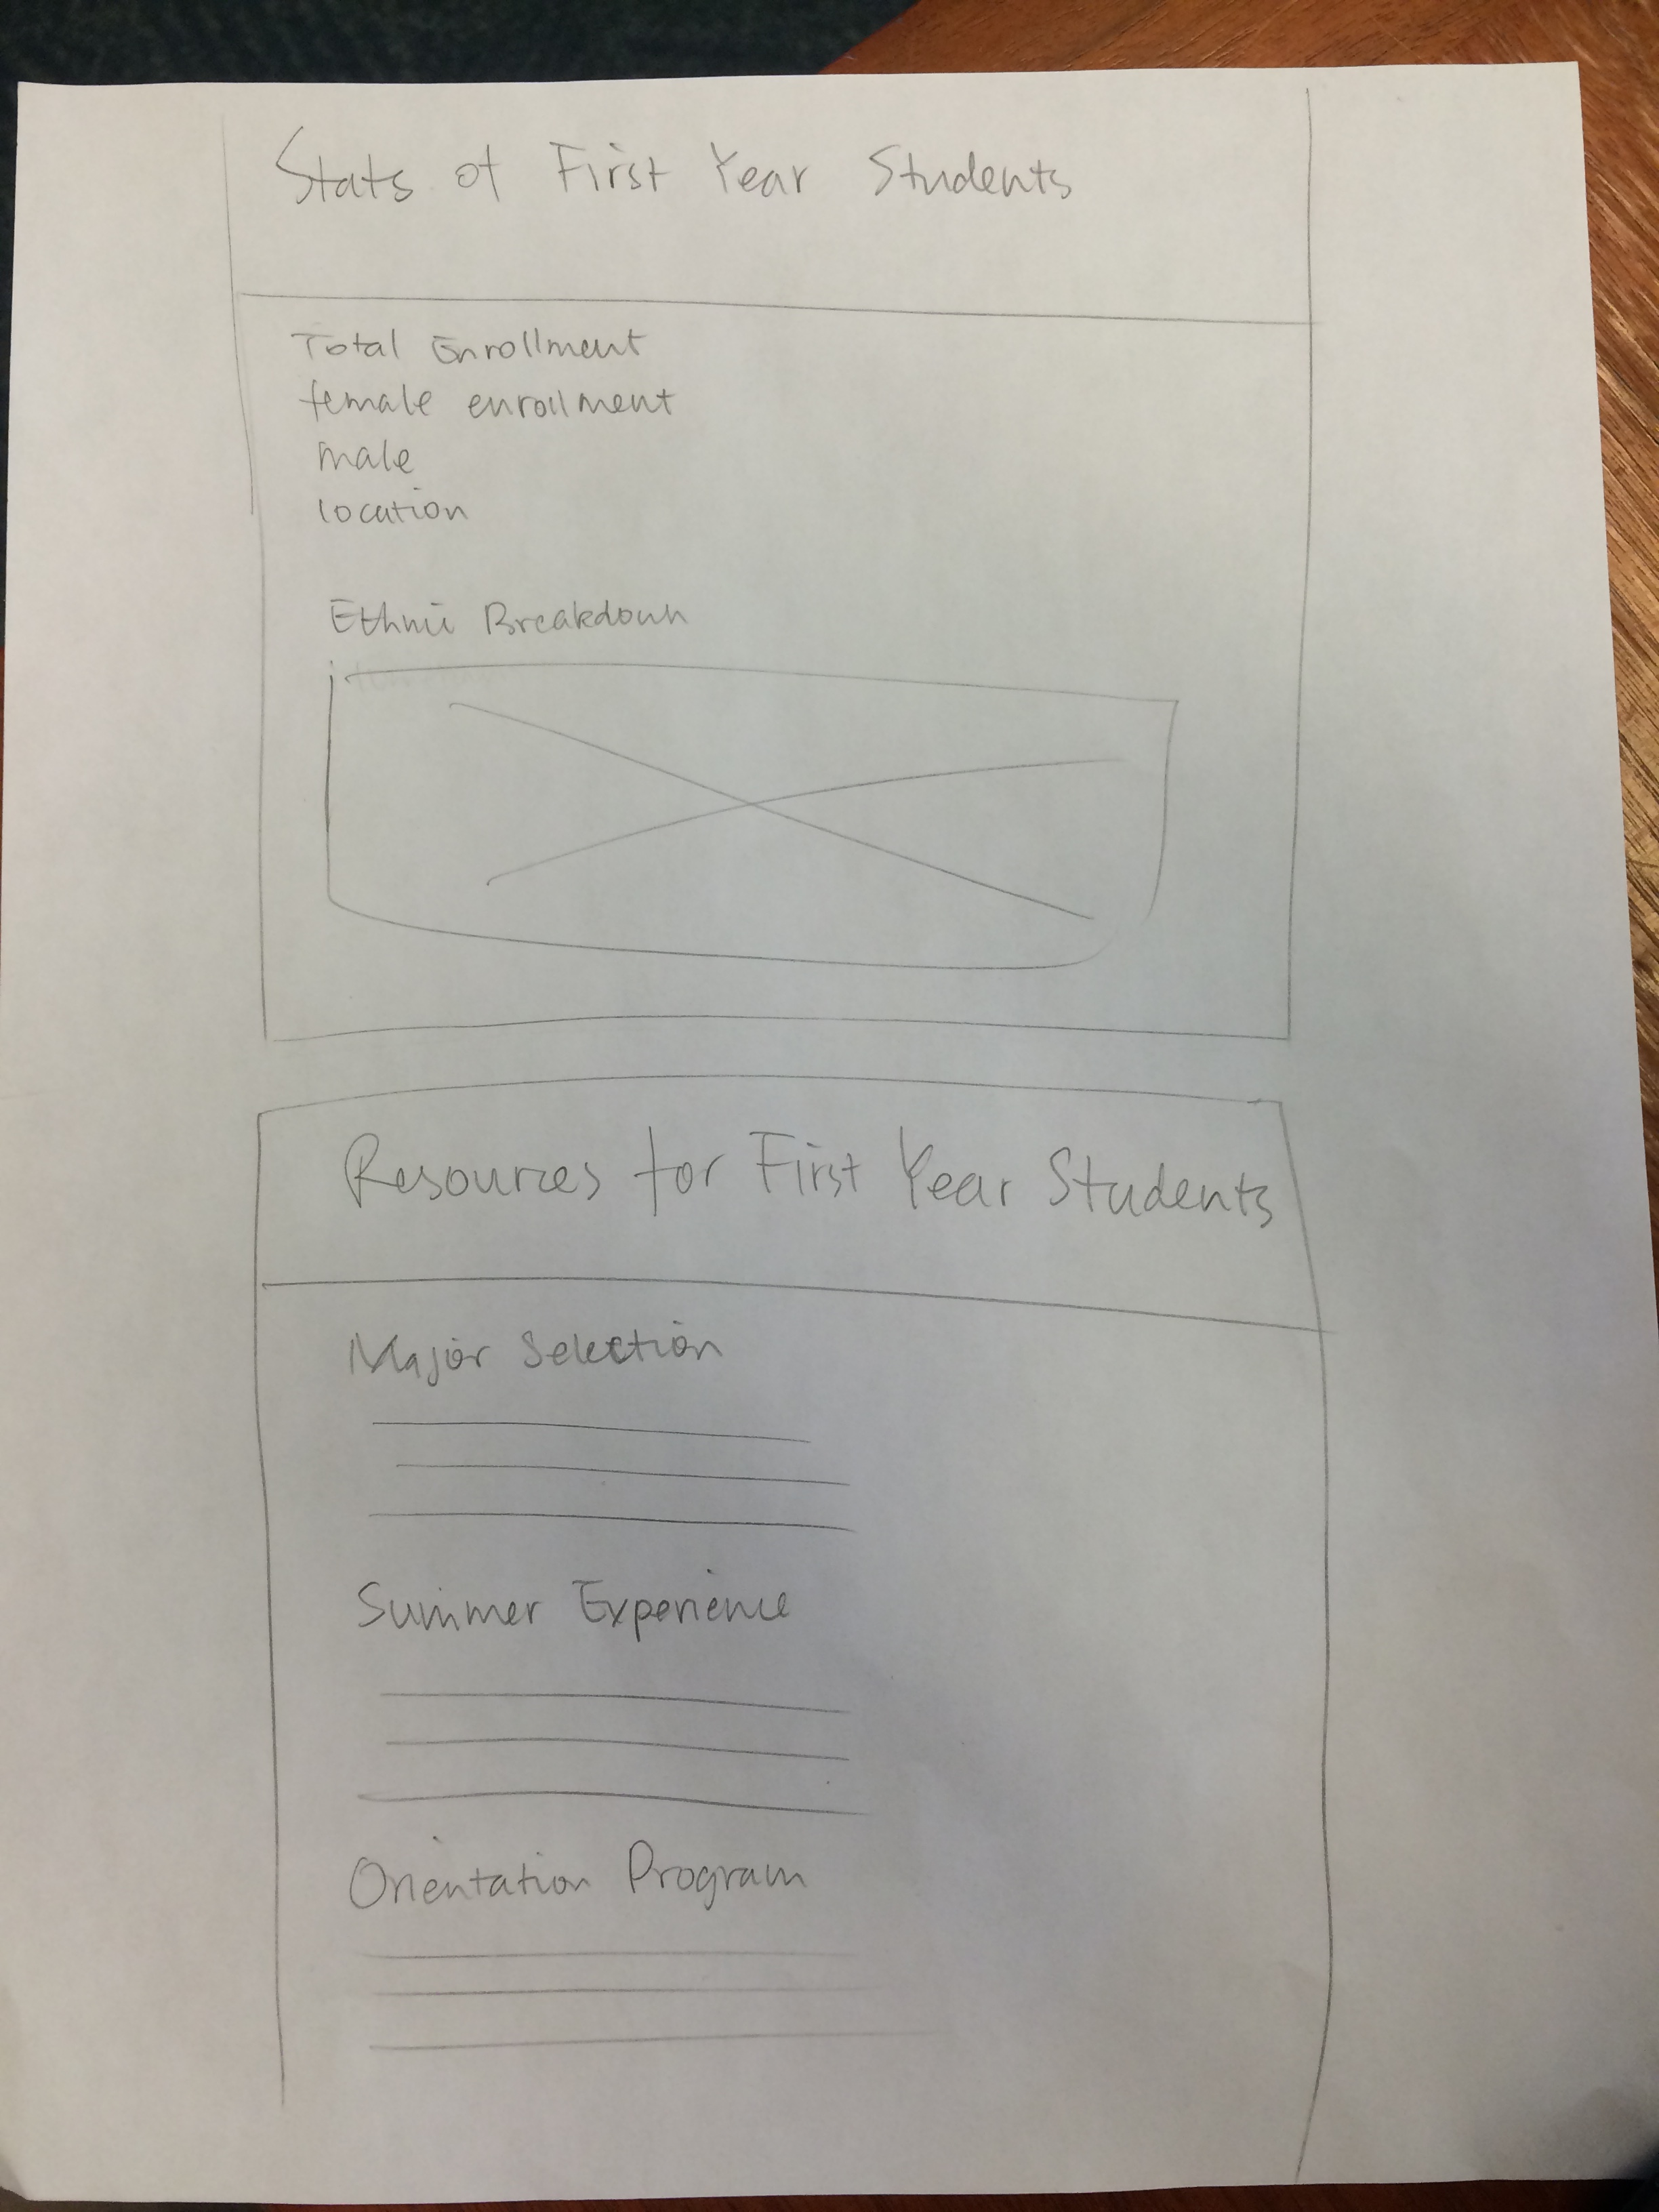 Stats of First Year Students
Total Enrollment
female enrollment
male
location
Ethnic Breakdown
Resources for First Year Students
Major Selection
Summer Experience
Orientation Program